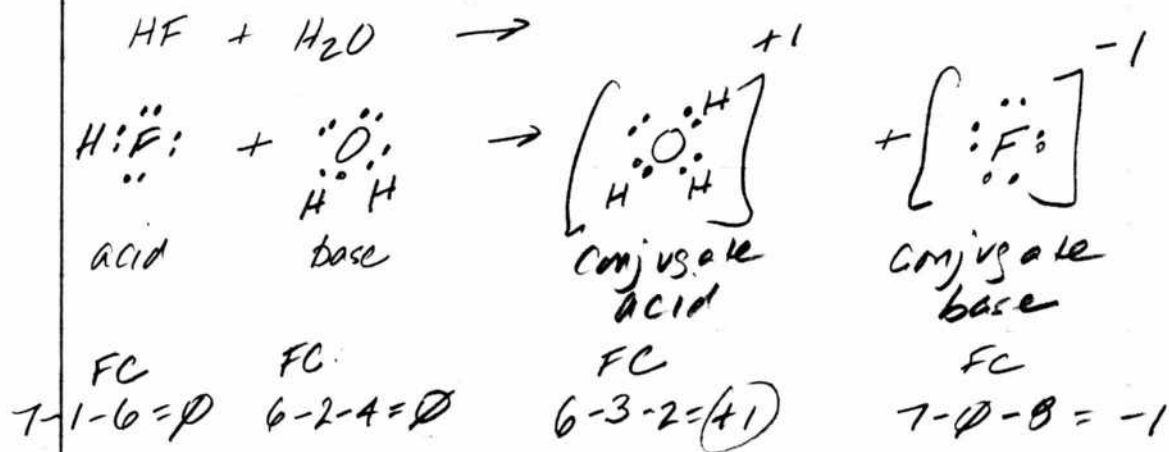 HF + H₂O →
H:F: + O → [H O H H]⁺¹ + [:F:]⁻¹
H H
acid base conjugate acid conjugate base
FC FC. FC FC
7-1-6=∅ 6-2-4=∅ 6-3-2=+1 7-∅-8 = -1